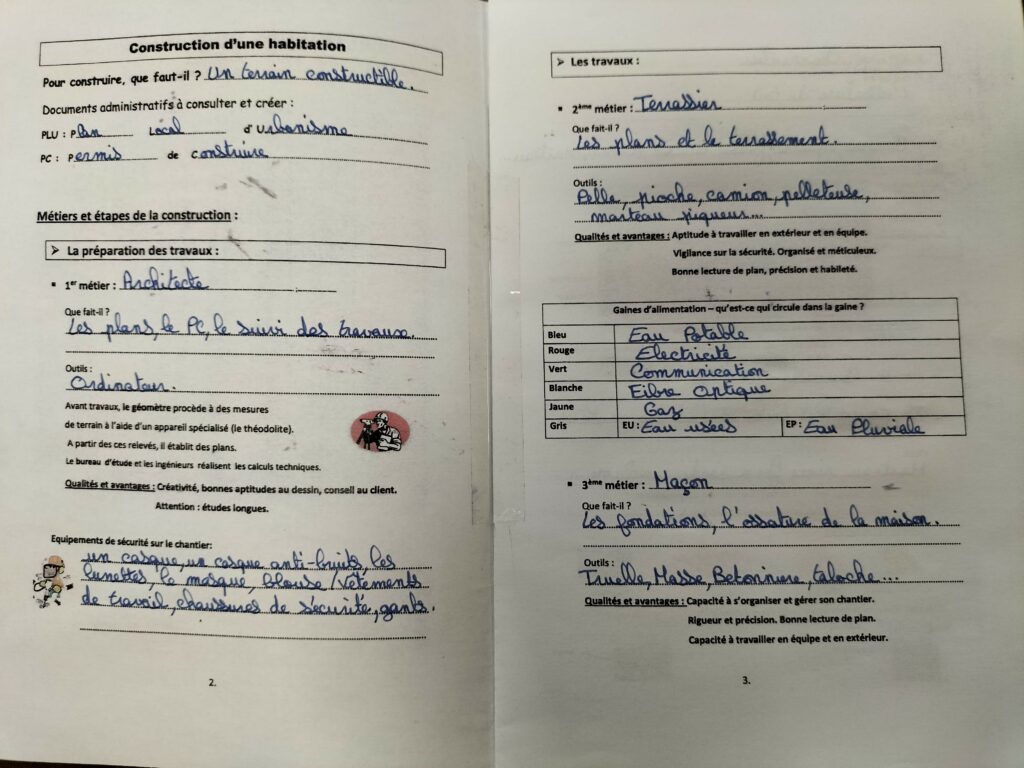 Construction d'une habitation
Pour construire, que faut-il ? Un terrain constructible.
Documents administratifs à consulter et créer :
PLU : Plan Local d'Urbanisme
PC : Permis de Construire
Métiers et étapes de la construction :
➢ La préparation des travaux :
▪ 1er métier : Architecte
Que fait-il ?
Les plans, le PC, le suivi des travaux.
Outils :
Ordinateur.
Avant travaux, le géomètre procède à des mesures
de terrain à l'aide d'un appareil spécialisé (le théodolite).
A partir des ces relevés, il établit des plans.
Le bureau d'étude et les ingénieurs réalisent les calculs techniques.
Qualités et avantages : Créativité, bonnes aptitudes au dessin, conseil au client.
Attention : études longues.
Equipements de sécurité sur le chantier:
un casque, un casque anti-bruits, les
lunettes, le masque, blouse/vêtements
de travail, chaussures de sécurité, gants.
2.
➢ Les travaux :
▪ 2ème métier : Terrassier
Que fait-il ?
Les plans et le terrassement.
Outils :
Pelle, pioche, camion, pelleteuse,
marteau piqueur...
Qualités et avantages : Aptitude à travailler en extérieur et en équipe.
Vigilance sur la sécurité. Organisé et méticuleux.
Bonne lecture de plan, précision et habileté.
Gaines d'alimentation – qu'est-ce qui circule dans la gaine ?
Bleu Eau Potable
Rouge Electricité
Vert Communication
Blanche Fibre Optique
Jaune Gaz
Gris EU : Eau usées EP : Eau Pluviale
▪ 3ème métier : Maçon
Que fait-il ?
Les fondations, l'ossature de la maison.
Outils :
Truelle, Masse, Betonniere, taloche...
Qualités et avantages : Capacité à s'organiser et gérer son chantier.
Rigueur et précision. Bonne lecture de plan.
Capacité à travailler en équipe et en extérieur.
3.